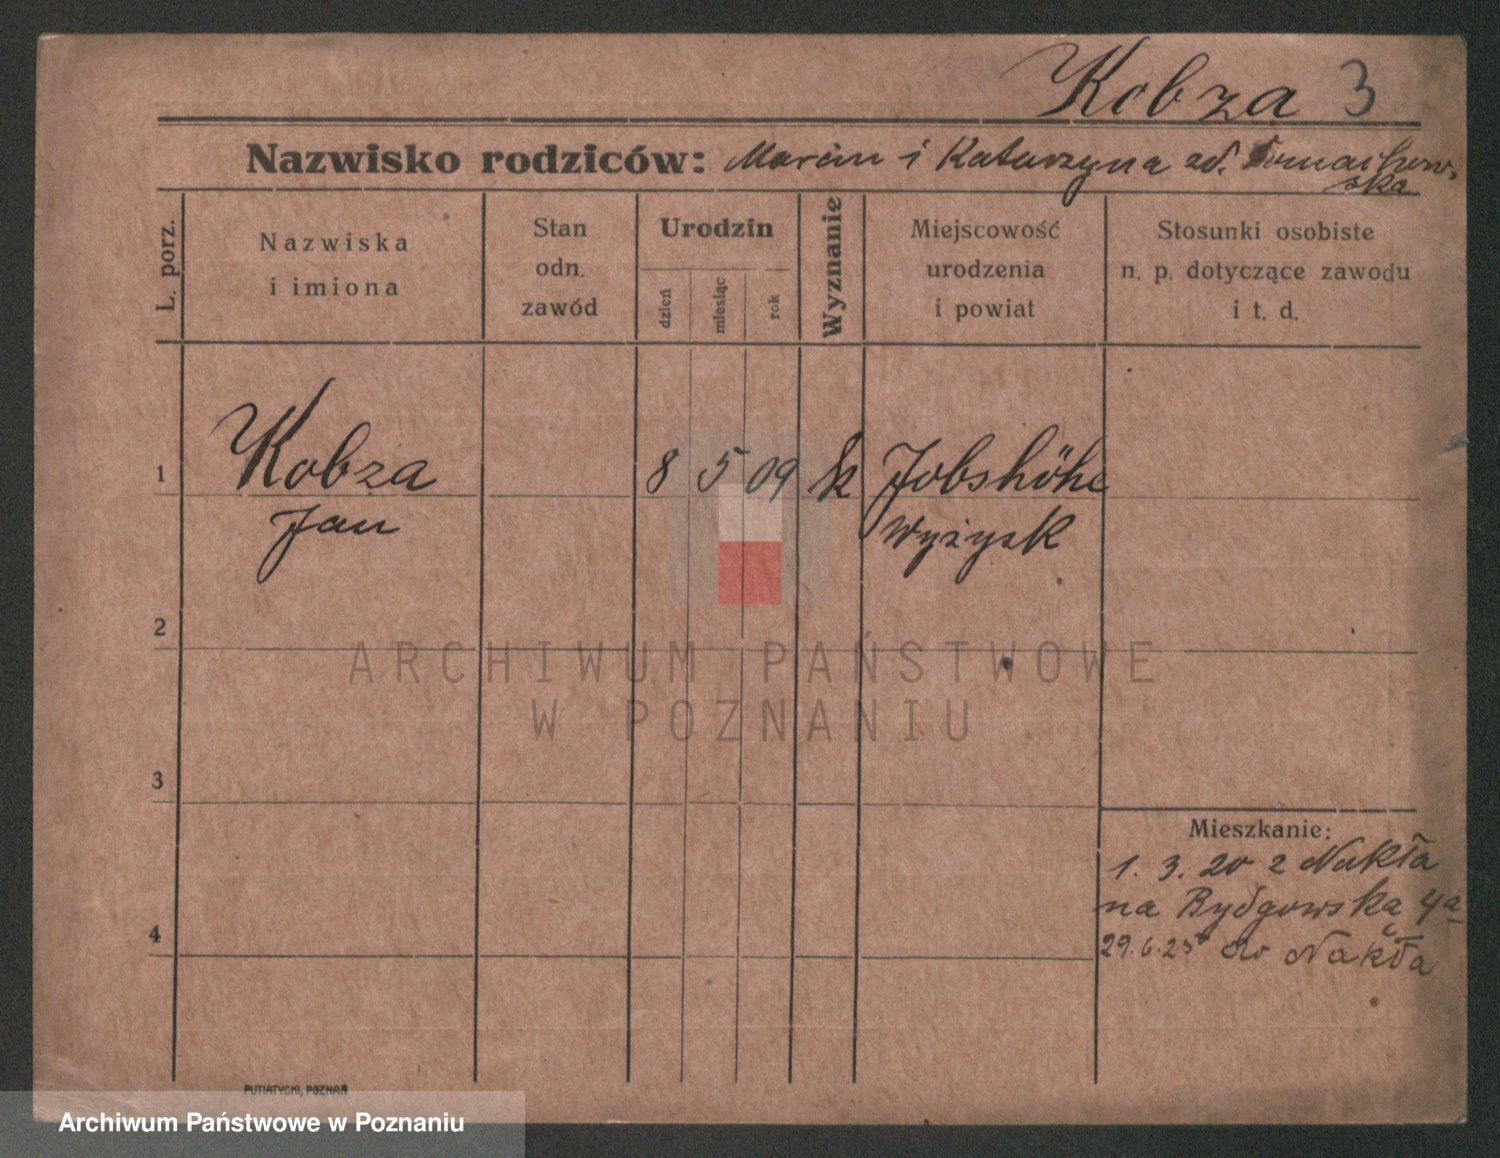 Kobza 3
Nazwisko rodziców: Marcin i Katarzyna zd. Tomaszewska
L. porz.
Nazwiska
i imiona
Stan
odn.
zawód
Urodzin
dzień
miesiąc
rok
Wyznanie
Miejscowość
urodzenia
i powiat
Stosunki osobiste
n. p. dotyczące zawodu
i t. d.
1 Kobza 8 5 09 k Jobshöhe
Jan Wyżysk
2
ARCHIWUM PAŃSTWOWE
W POZNANIU
3
Mieszkanie:
1. 3. 20 z Nakła
na Bydgowską 4a
4
29. 6. 25 do Nakła
PUTIATYCKI, POZNAŃ
Archiwum Państwowe w Poznaniu